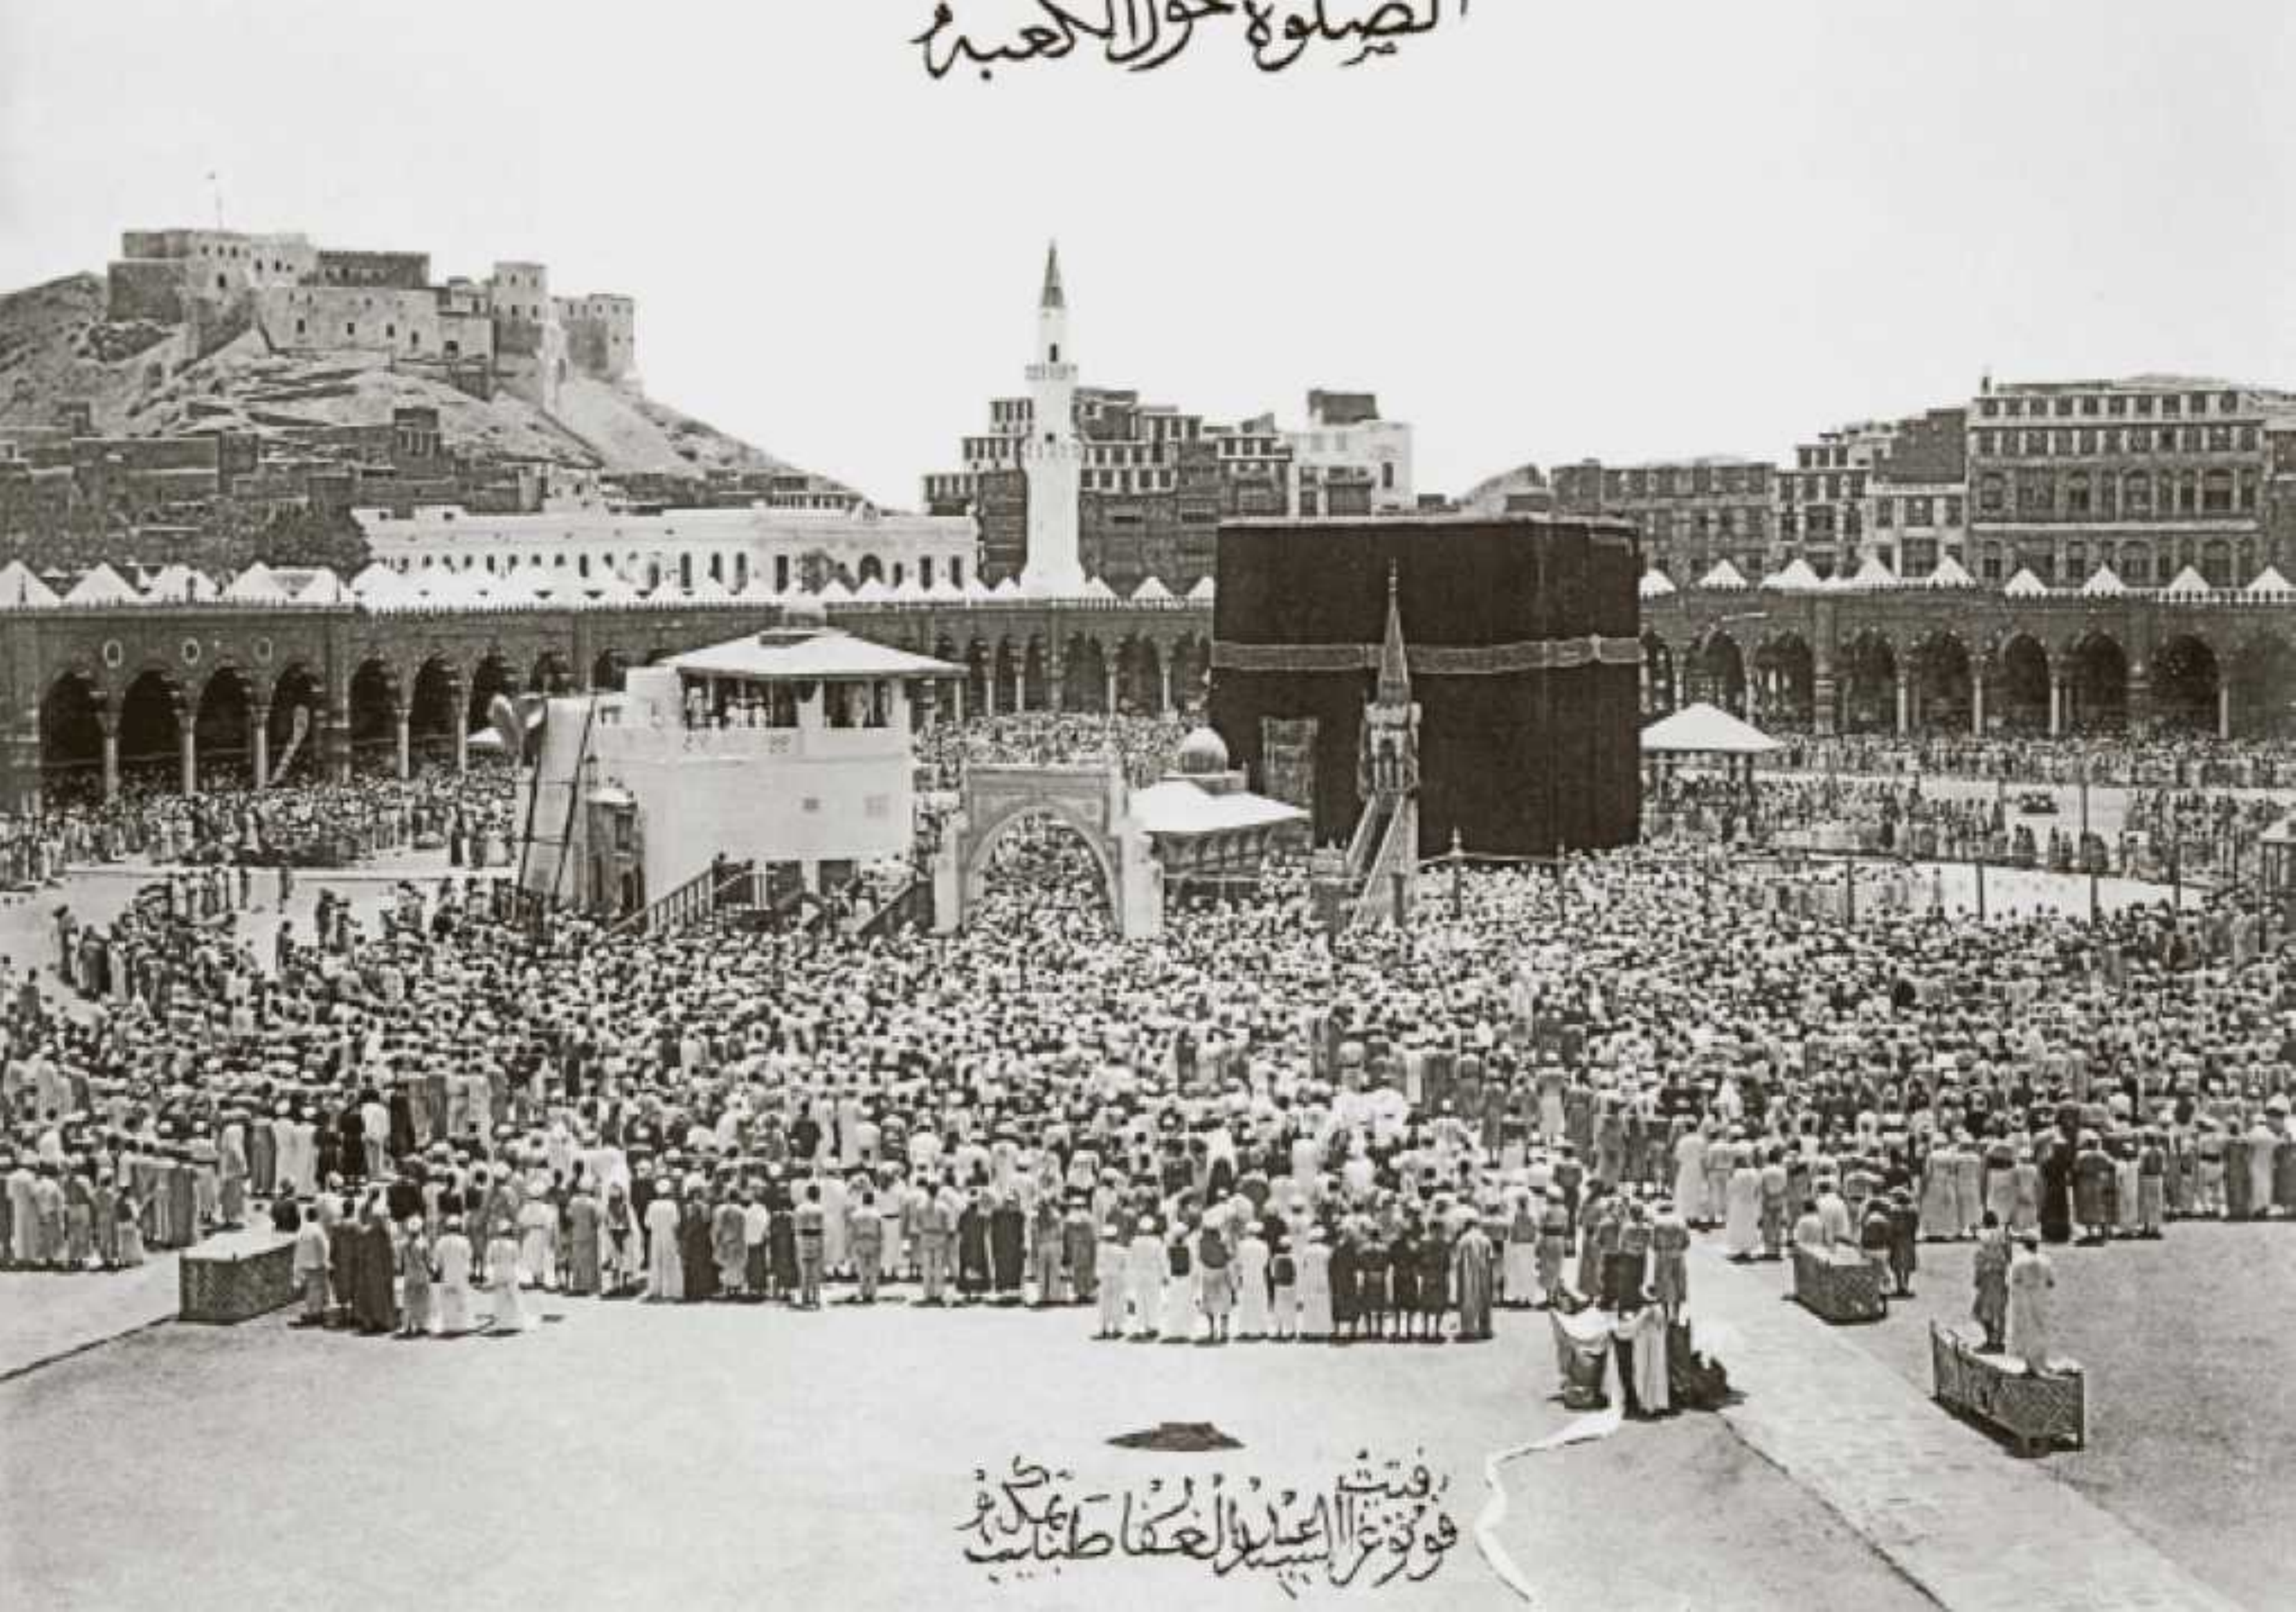 الصلوة حول الكعبه
فوتوغرافية السيد عبد الغفار طبيب مكة